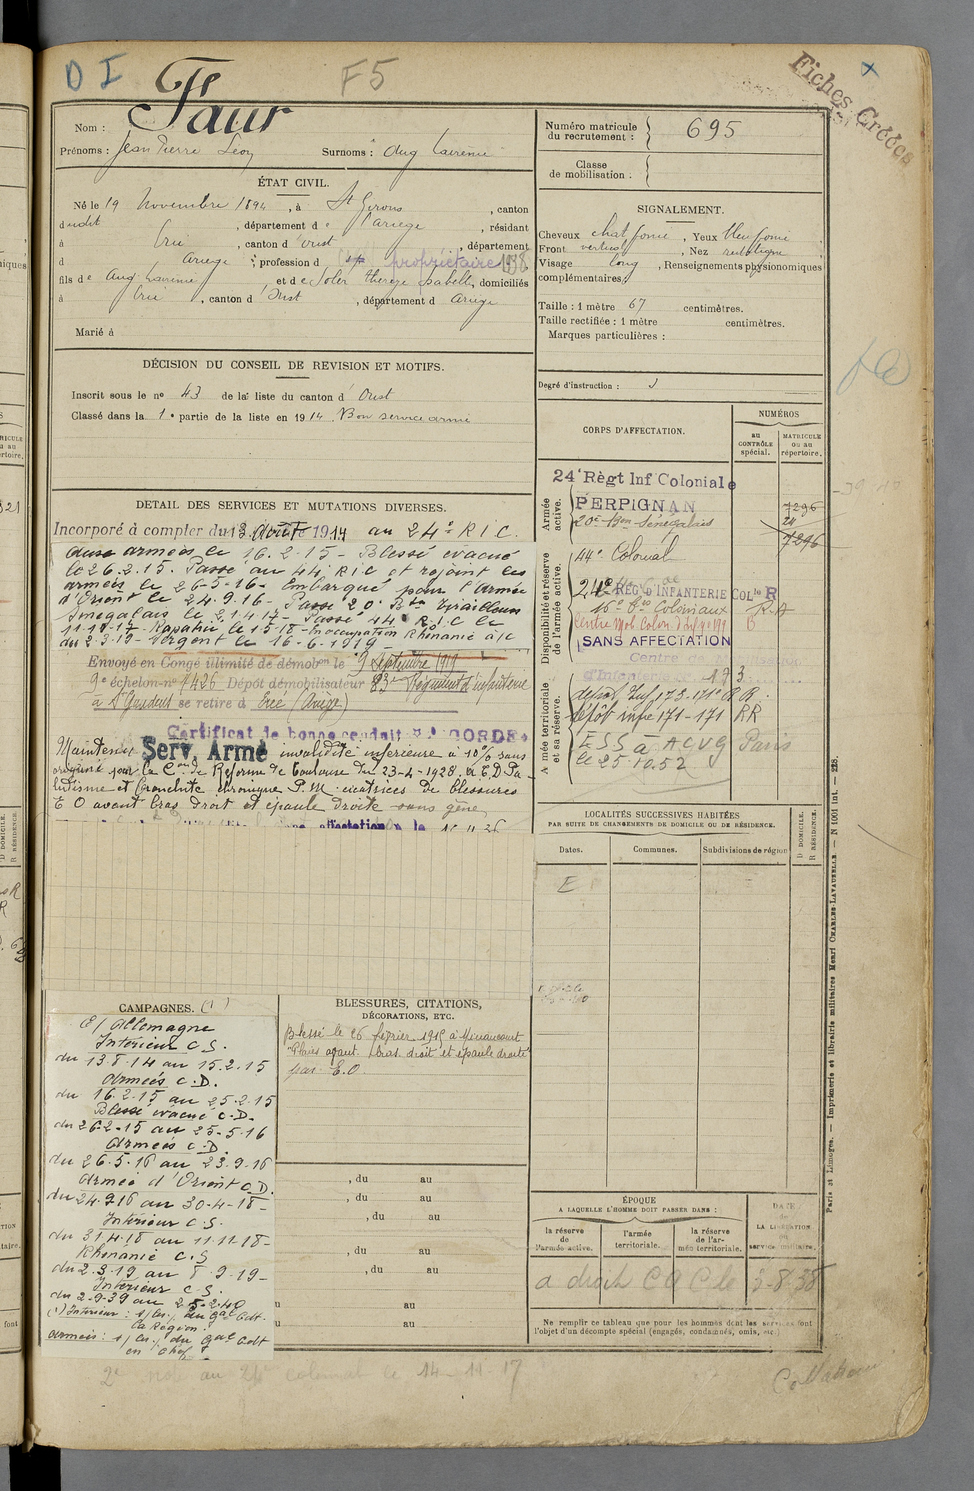 D I
F5
Fiches Créées
x
Nom : Faur
Prénoms : Jean Pierre Léon Surnoms : Aug Laurens
ÉTAT CIVIL.
Né le 19 Novembre 1894, à St Girons, canton
dudit, département de l'Ariège, résidant
à Ercé, canton d'Oust, département
d Ariège, profession d propriétaire
fils de Aug Laurens et de Soler Thérèze Isabelle, domiciliés
à Ercé, canton d'Oust, département d Ariège
Marié à
DÉCISION DU CONSEIL DE REVISION ET MOTIFS.
Inscrit sous le nº 43 de la liste du canton d'Oust
Classé dans la 1e partie de la liste en 1914. Bon service armé
DETAIL DES SERVICES ET MUTATIONS DIVERSES.
Incorporé à compter du 13 Août 1914 au 24e R I C.
aux armées le 16.2.15 - Blessé évacué
le 26.2.15. Passé au 44 R I C et rejoint les
armées le 26-5-16 - Embarqué pour l'Armée
d'Orient le 24.9.16 - Passé 20. Bton Tirailleurs
Senegalais le 21.4.17 - Passé 44 R I C le
11-11-17 - Rapatrié le 1-5-18 - In occupation Rhénanie à/c
du 2-3-19 - Sergent le 16-6-1919 -
Envoyé en Congé illimité de démobon le 9 septembre 1919
9e échelon-no 7426 Dépôt démobilisateur 83e Régiment d'infanterie
à St Gaudens se retire à Ercé (Ariège)
Certificat de bonne conduite ACCORDÉ
Maintenu Serv. Armé invalidité inférieure à 10% sans
origine par la Con de Réforme de Toulouse du 23-4-1928. à E.D. Pa
ludisme et bronchite chronique P.M. cicatrices de blessures
E O avant bras droit et épaule droite sans gêne
CAMPAGNES. (1)
C/ Allemagne
Intérieur C S.
du 13.8.14 au 15.2.15
Armées C.D.
du 16.2.15 au 25.2.15
Blessé évacué C.D.
du 26.2.15 au 25-5-16
Armées C.D.
du 26.5.16 au 23.9.16
Armée d'Orient C.D.
du 24.9.16 au 30-4-18-
Intérieur C S.
du 31.4.18 au 11.11.18-
Rhénanie C.S
du 2-3.19 au 8-9-19-
Intérieur C S.
du 2-9-39 au 2-5-2-40
(1) Intérieur : 1/ Cs. du Gal Cdt.
la Région.
Armées : 1/ Cs. du Gal Cdt
en chef
BLESSURES, CITATIONS,
DÉCORATIONS, ETC.
Blessé le 26 février 1915 à Minaucourt
"Plaies avant bras droit et épaule droite"
par E.O.
, du au
, du au
, du au
, du au
, du au
au
au
2e nole au 24e colonial le 14-11-17
Numéro matricule
du recrutement : 695
Classe
de mobilisation :
SIGNALEMENT.
Cheveux chat foncé, Yeux bleu foncé
Front vertical, Nez rectiligne
Visage long, Renseignements physionomiques
complémentaires,
Taille : 1 mètre 67 centimètres.
Taille rectifiée : 1 mètre centimètres.
Marques particulières :
Degré d'instruction :
CORPS D'AFFECTATION.
NUMÉROS
au
CONTRÔLE
spécial.
MATRICULE
ou au
répertoire.
Armée
active.
24e Règt Inf Coloniale
PERPIGNAN
20e Bon Sénégalais
7296
7296
Disponibilité et réserve
de l'armée active.
44e Colonial
24e RÉG D'INFANTERIE COLle R
16e Bon Coloniaux R.A
Centre Mob Colon. d'Inf
SANS AFFECTATION
Centre de Mobilisation
d'Infanterie 173
Armée territoriale
et sa réserve.
dépot Inf 173-171e
dépôt infie 171-171 RR
ESS à ACVG Paris
le 25.10.52
LOCALITÉS SUCCESSIVES HABITÉES
PAR SUITE DE CHANGEMENTS DE DOMICILE OU DE RÉSIDENCE.
D DOMICILE.
R RÉSIDENCE.
Dates.
Communes.
Subdivisions de région
E
ÉPOQUE
A LAQUELLE L'HOMME DOIT PASSER DANS :
la réserve
de
l'armée active.
l'armée
territoriale.
la réserve
de l'ar-
mée territoriale.
DATE
de
LA LIBÉRATION
du
service militaire.
a droit CA C de 3-8-38
Ne remplir ce tableau que pour les hommes dont les services font
l'objet d'un décompte spécial (engagés, condamnés, omis, etc.)
Paris et Limoges. — Imprimerie et librairie militaires Henri CHARLES-LAVAUZELLE. — N 1001 Int. — 228.